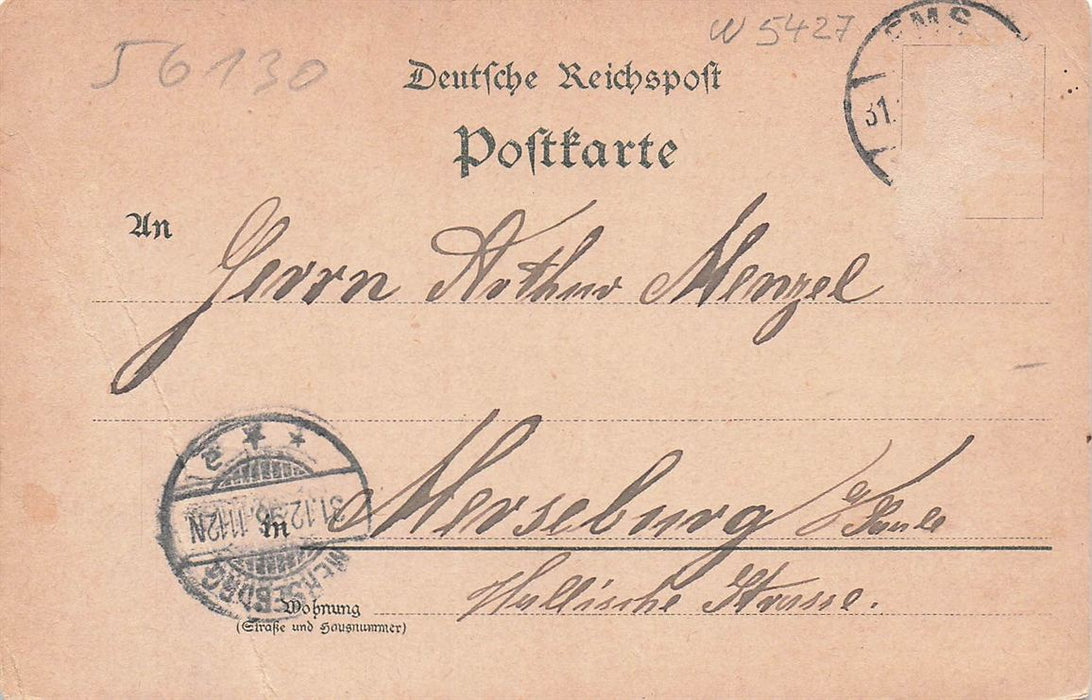 56130
W 5427
EMS
31.
Deutsche Reichspost
Postkarte
An
Herrn Arthur Menzel
in Merseburg a/Saale
Wohnung Hallische Strasse.
(Straße und Hausnummer)
MERSEBURG
31.12.98. 11-12N
e